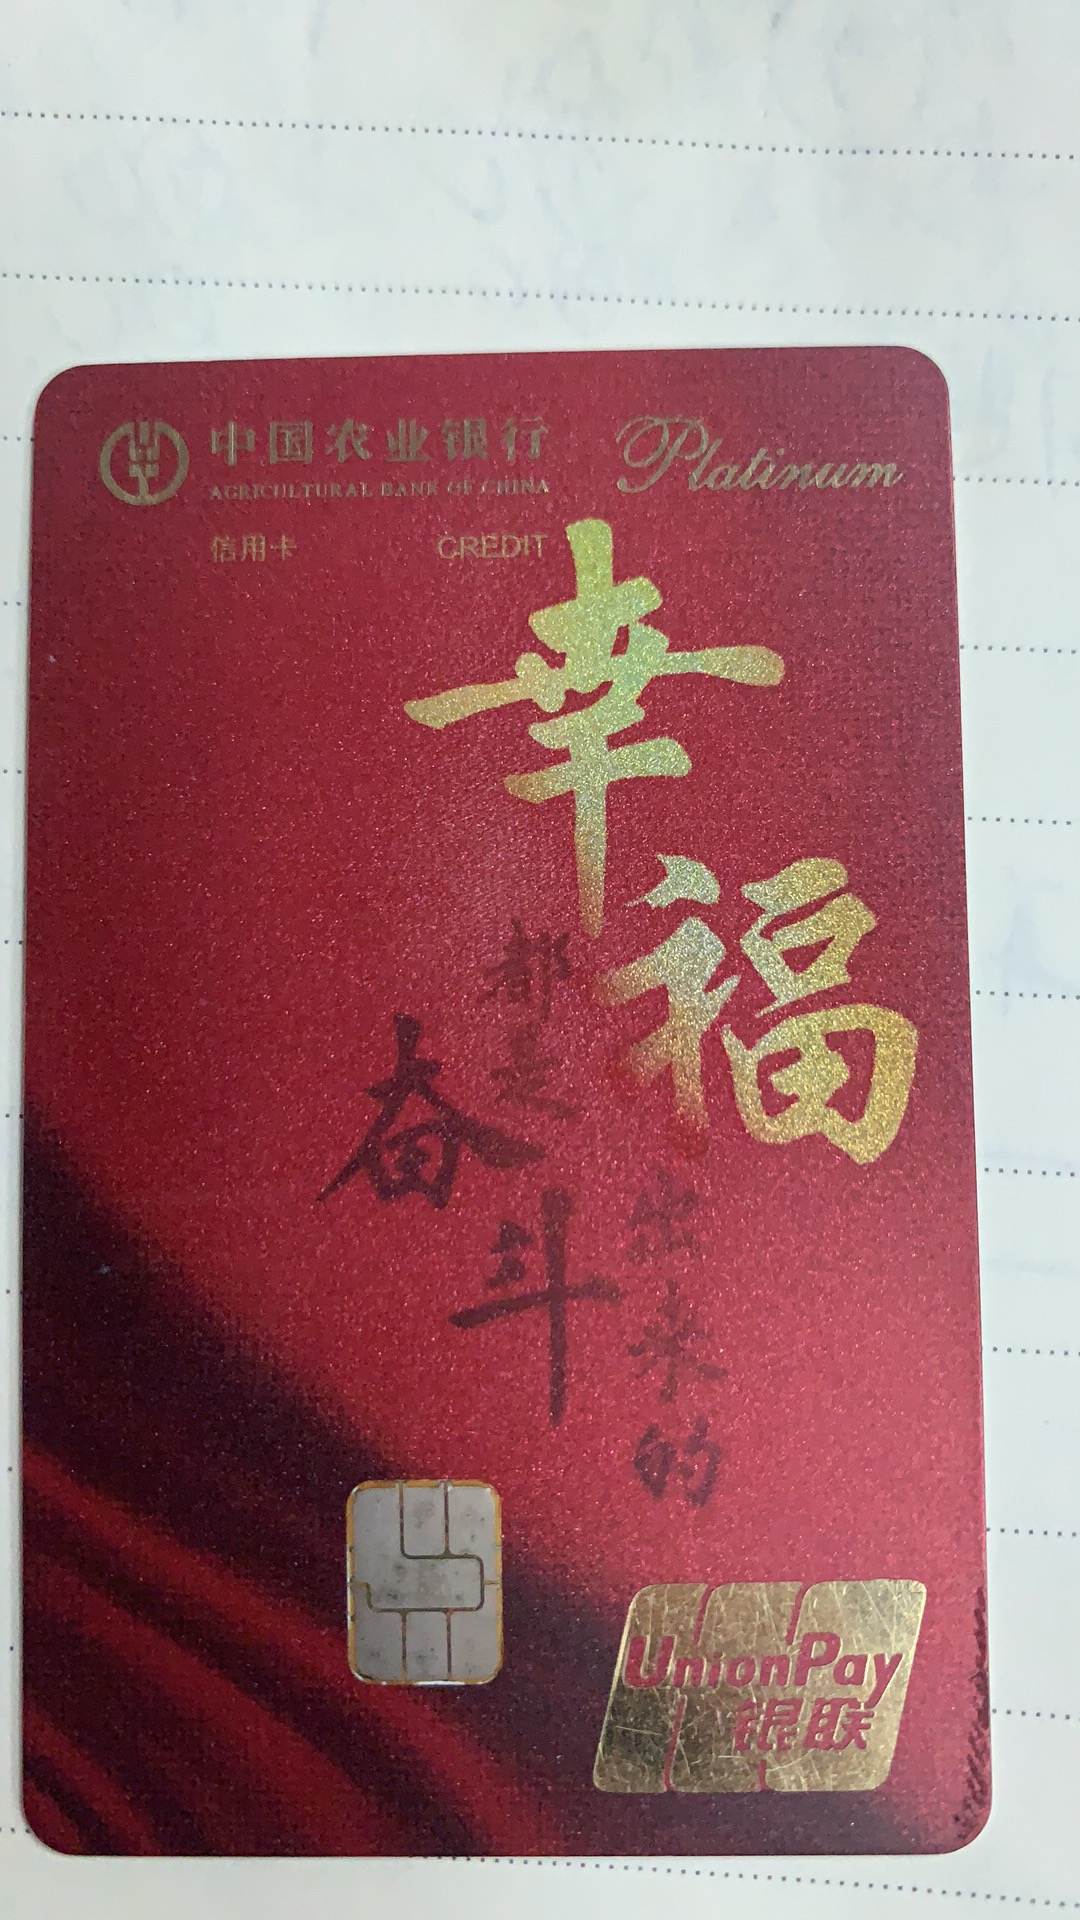 中国农业银行
AGRICULTURAL BANK OF CHINA
Platinum
信用卡 CREDIT
幸福
都是
奋斗
出来的
UnionPay
银联